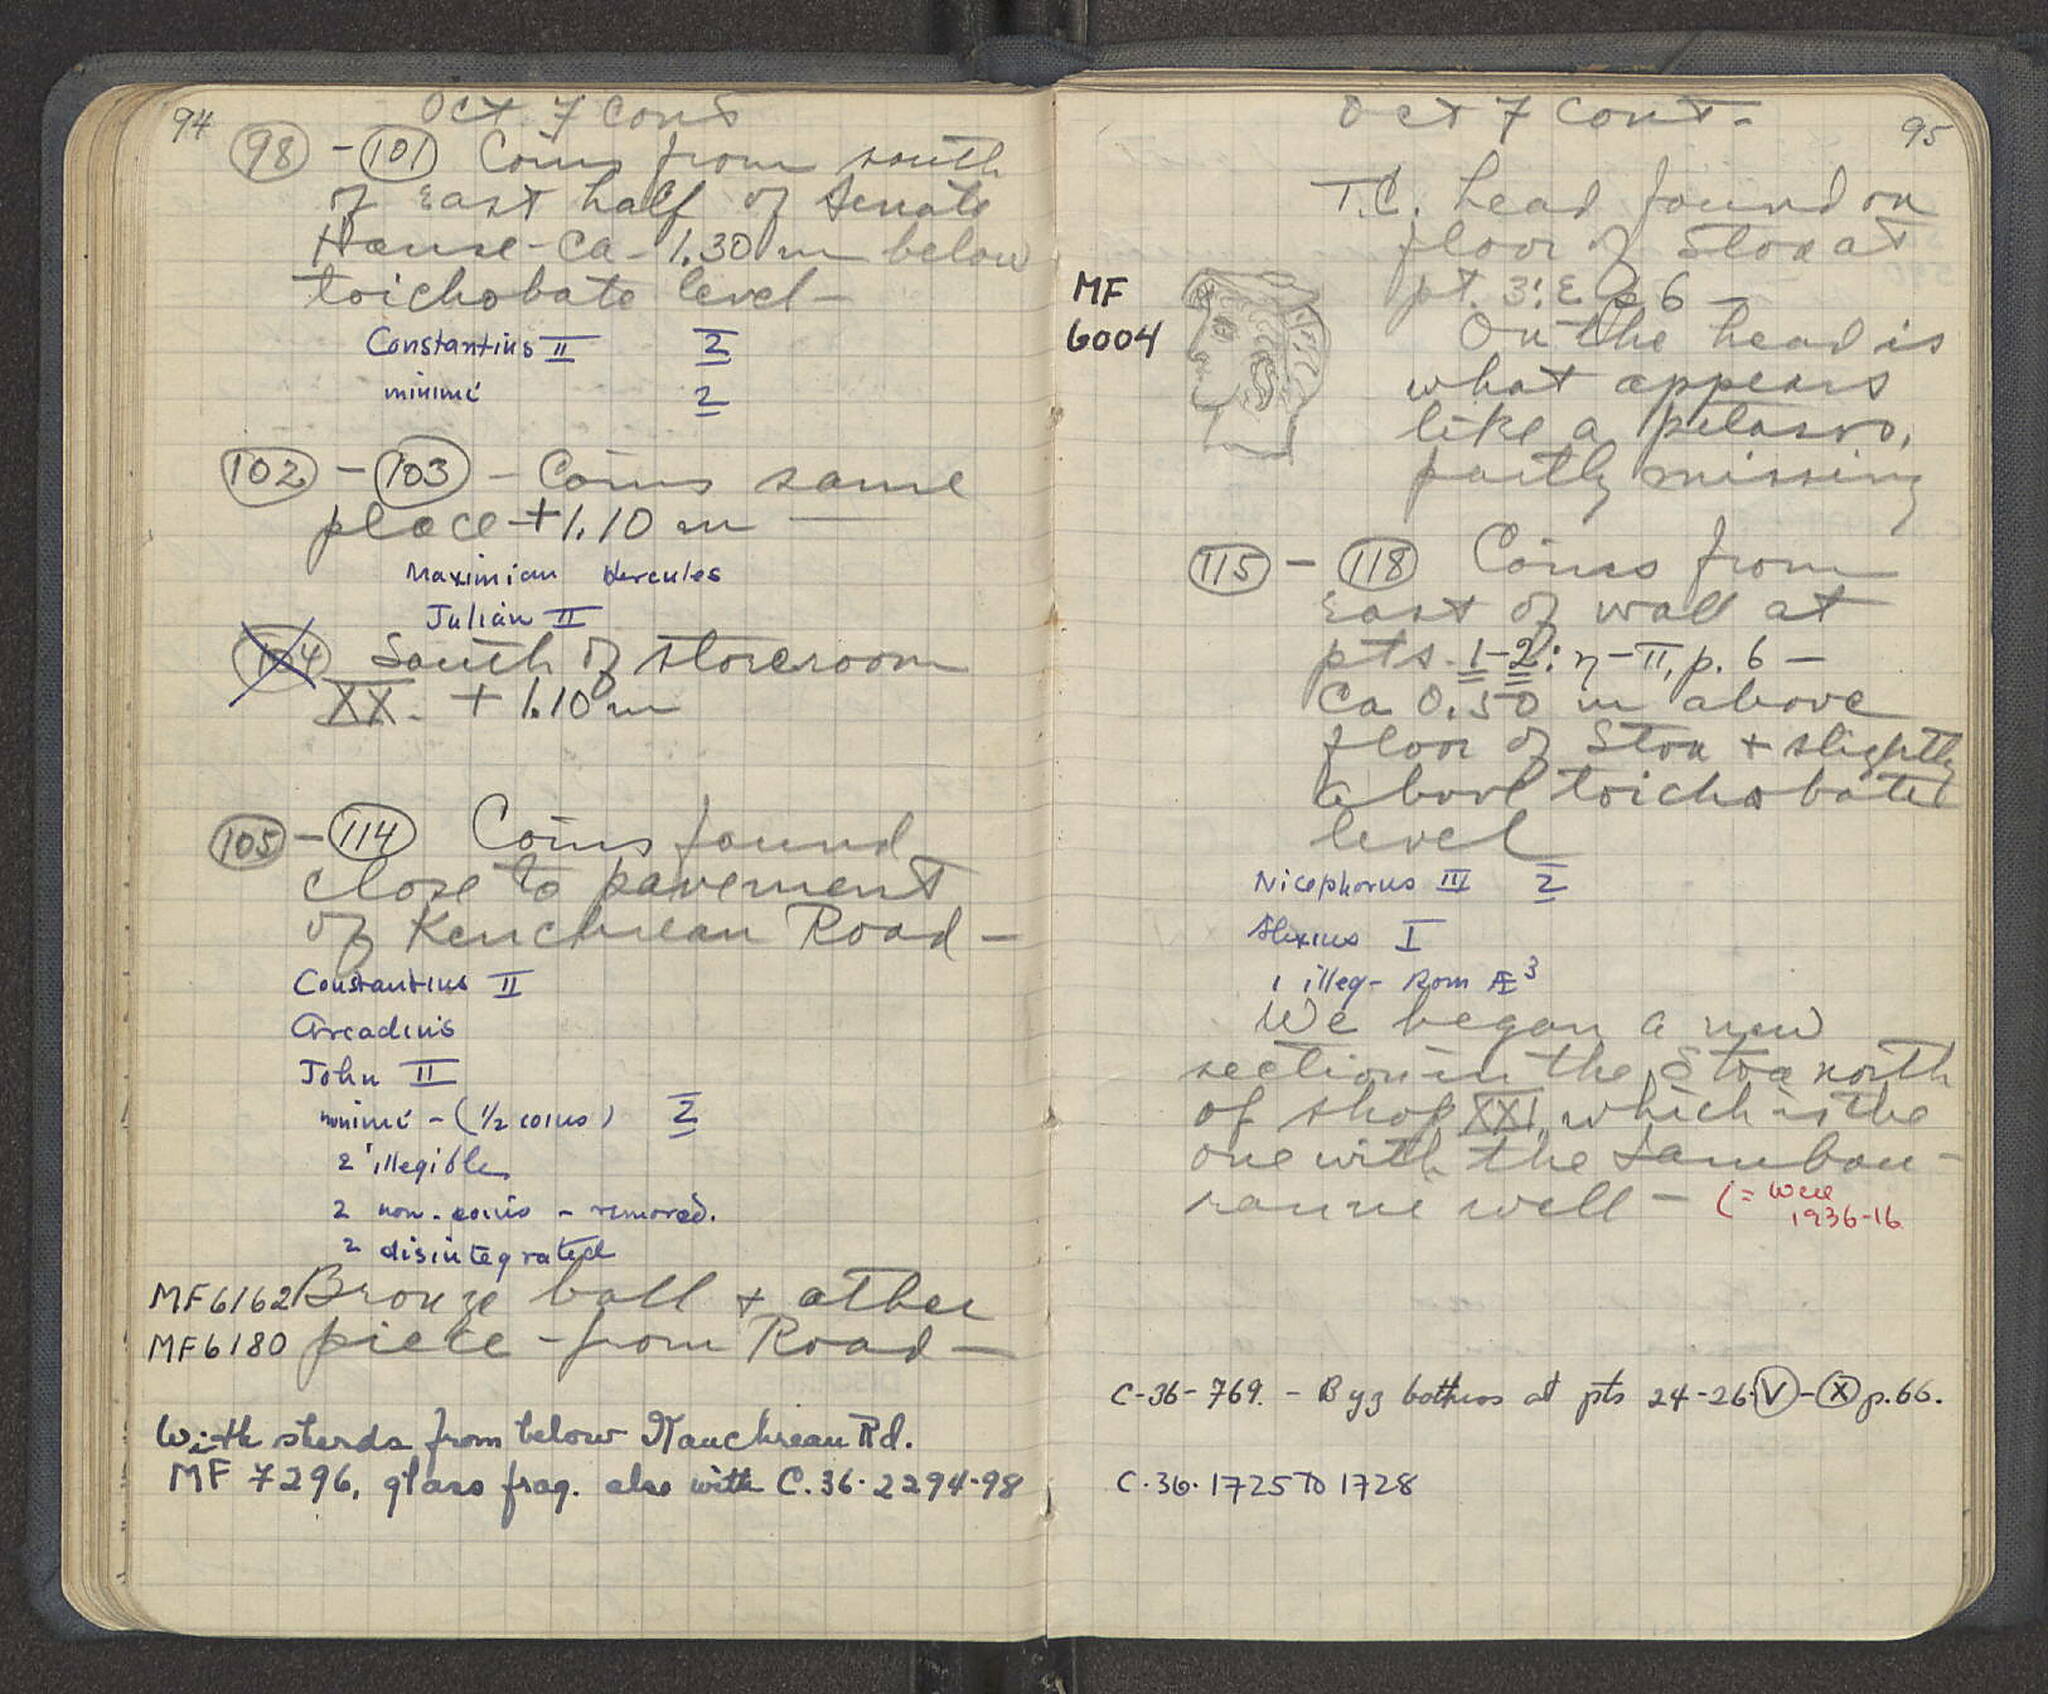 94
Oct. 7 Cont
98 - 101 Coins from south
of East half of Senate
House - Ca - 1.30 m below
toichobate level -
Constantius II 2
minimi 2
102 - 103 - Coins same
place + 1.10 m
Maximian Hercules
Julian II
104 South of storeroom
XX. + 1.10 m
105 - 114 Coins found
close to pavement
of Kenchrean Road -
Constantius II
Arcadius
John II
minimi - (1/2 coins) 2
2 illegible
2 non-coins - removed.
2 disintegrated
MF6162 Bronze ball + other
MF6180 piece - from Road -
With sherds from below Kenchrean Rd.
MF 7296, glass frag. also with C.36.2294-98
95
Oct 7 Cont -
T.C. head found on
floor of Stoa at
pt. 3:ε p 6 -
MF
6004
On the head is
what appears
like a petasos,
partly missing
115 - 118 Coins from
East of wall at
pts. 1-2: η-π, p. 6 -
Ca 0.50 m above
floor of Stoa + slightly
above toichobate
level
Nicephorus III 2
Alexius I
1 illeg - Rom Æ3
We began a new
section in the Stoa north
of shop XXI, which is the
one with the Tambou-
ranne well - (= well
1936-16
C-36-769. - Byz bothros at pts 24-26 V - X p.66.
C.36.1725 to 1728